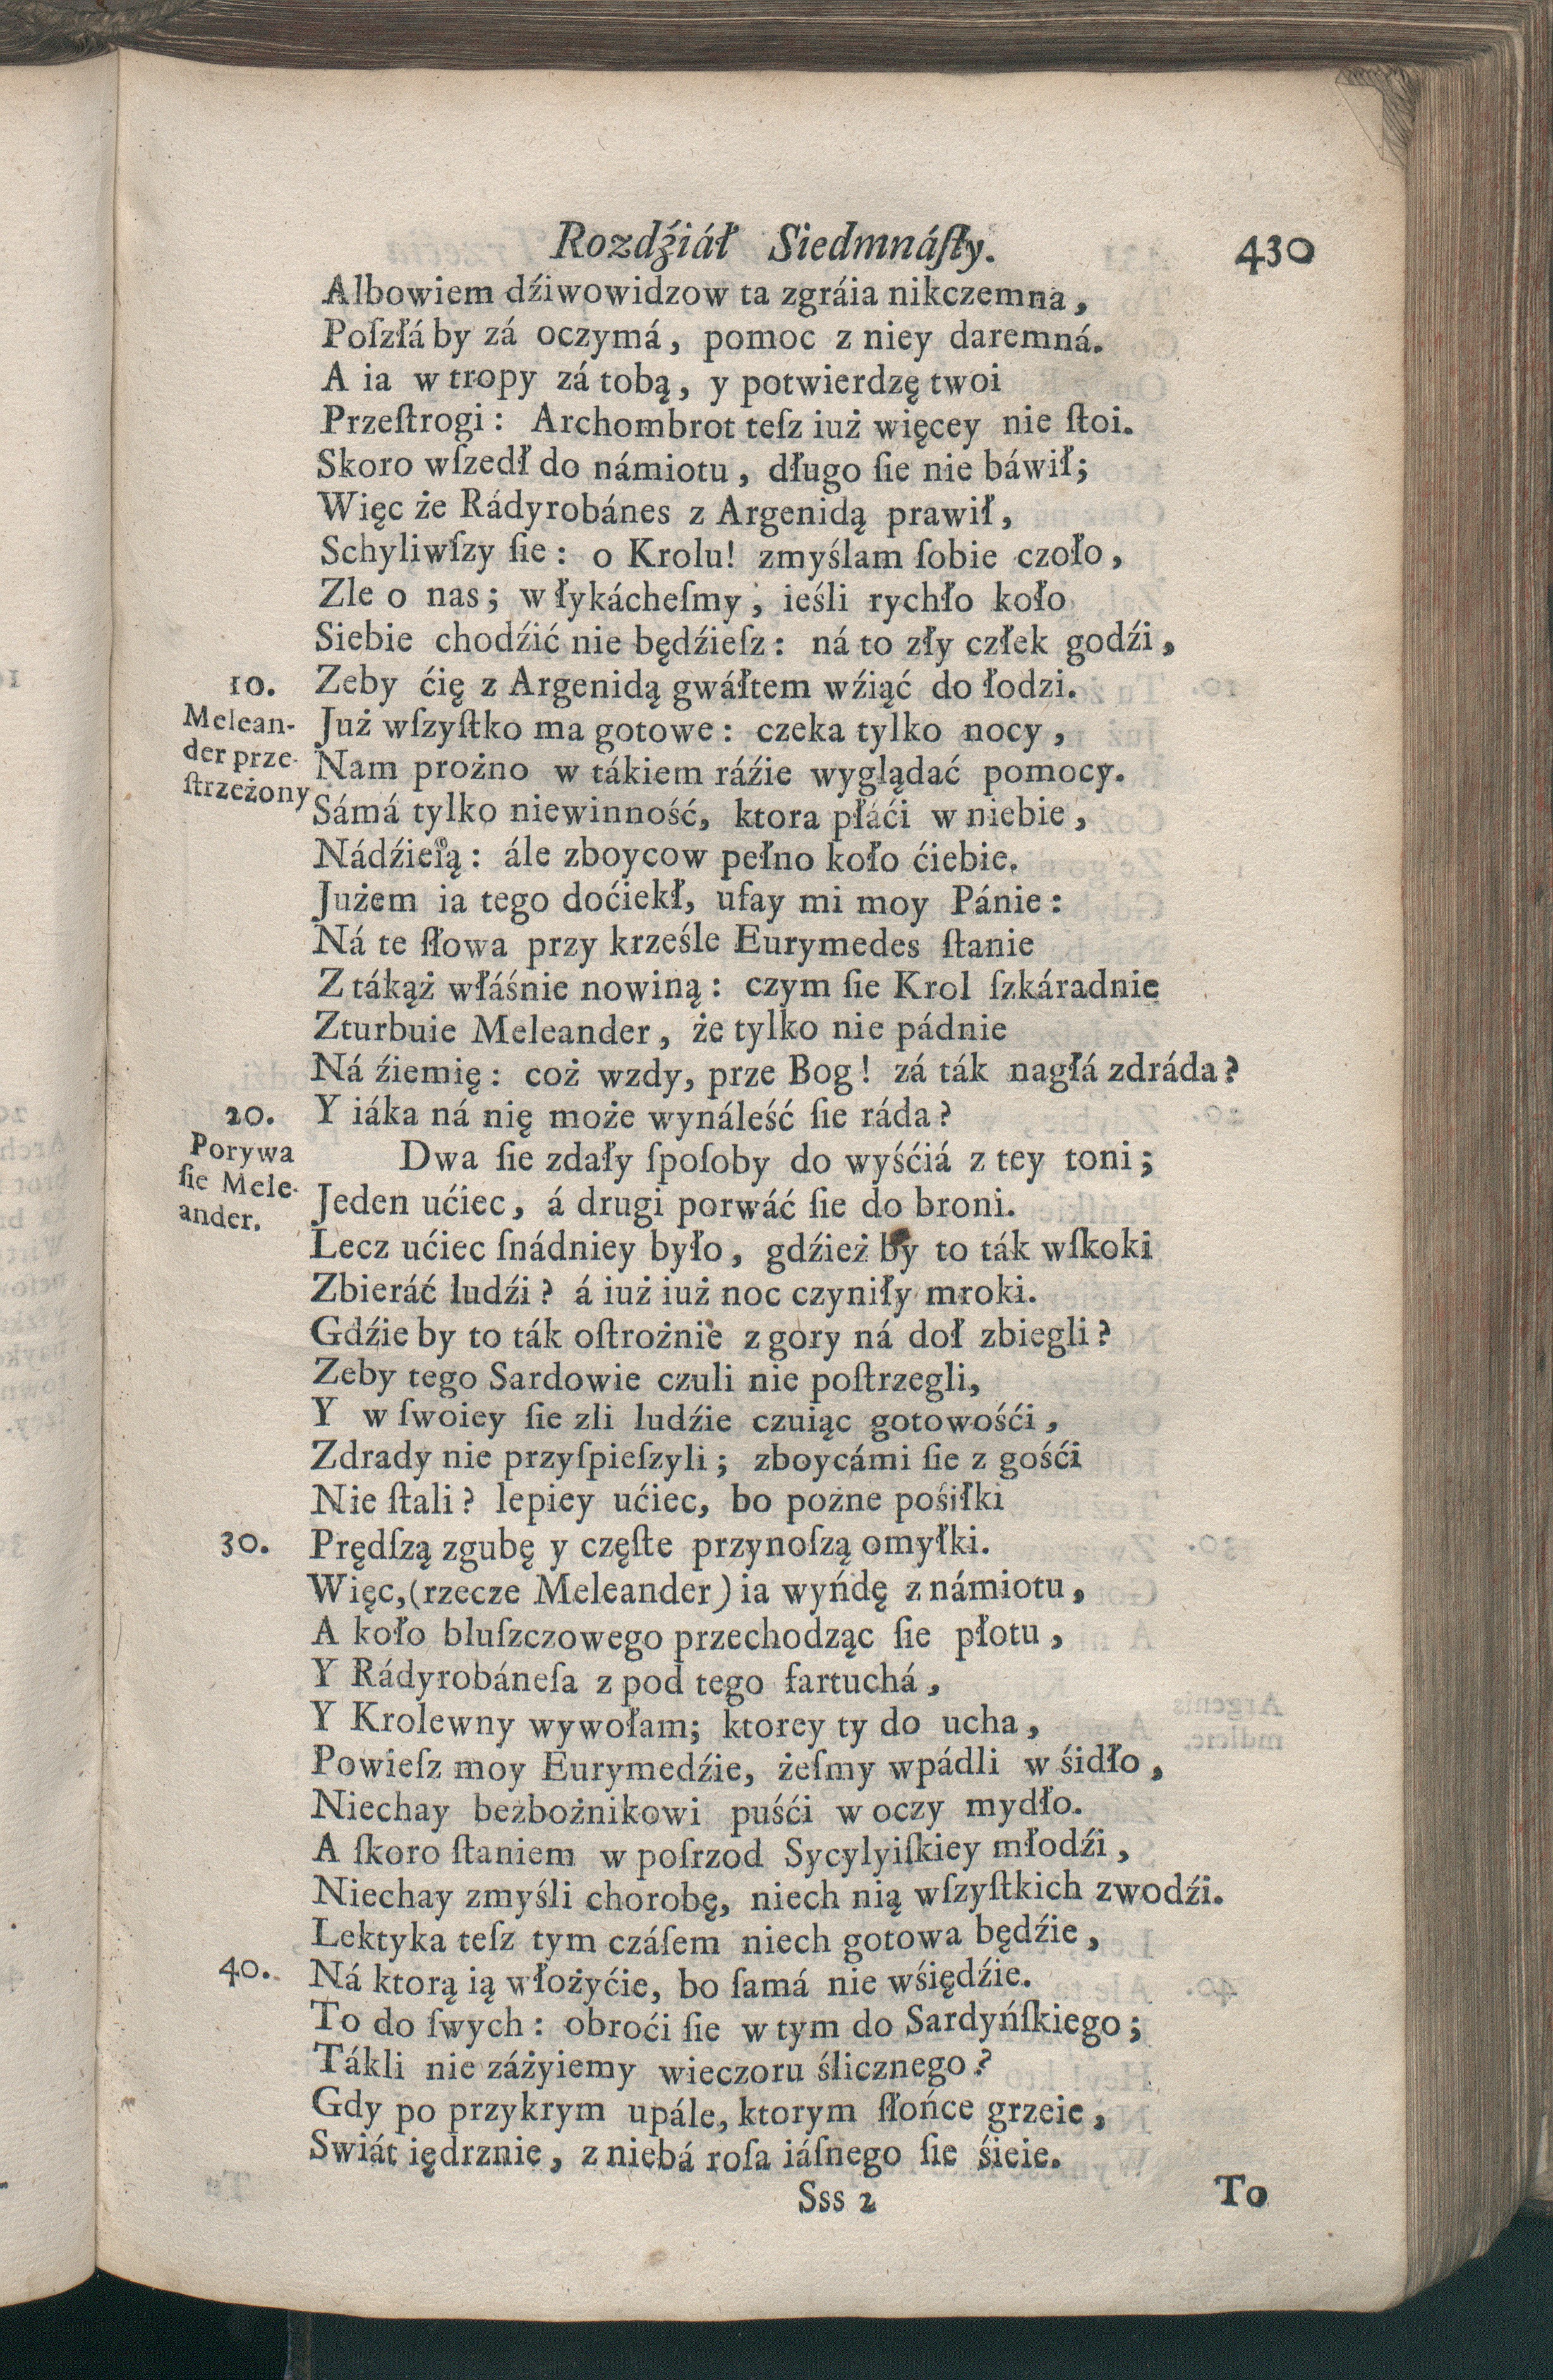 Rozdźiáł Siedmnáſty. 430
Albowiem dźiwowidzow ta zgráia nikczemna,
Poſzłáby zá oczymá, pomoc z niey daremná.
A ia w tropy zá tobą, y potwierdzę twoi
Przeſtrogi: Archombrot teſz iuż więcey nie ſtoi.
Skoro wſzedł do námiotu, długo ſie nie báwił;
Więc że Rádyrobánes z Argenidą prawił,
Schyliwſzy ſie: o Krolu! zmyślam ſobie czoło,
Zle o nas; w łykácheſmy, ieśli rychło koło
Siebie chodźić nie będźieſz: ná to zły człek godźi,
10. Zeby ćię z Argenidą gwáłtem wźiąć do łodzi.
Melean-
der prze-
ſtrzeżony
Już wſzyſtko ma gotowe: czeka tylko nocy,
Nam prożno w tákiem ráźie wyglądać pomocy.
Sámá tylko niewinność, ktora płáći w niebie,
Nádźieią: ále zboycow pełno koło ćiebie.
Jużem ia tego doćiekł, ufay mi moy Pánie:
Ná te ſłowa przy krześle Eurymedes ſtanie
Z tákąż właśnie nowiną: czym ſie Krol ſzkáradnie
Zturbuie Meleander, że tylko nie pádnie
Ná źiemię: coż wzdy, prze Bog! zá ták nagłá zdráda?
20. Y iáka ná nię może wynáleść ſie ráda?
Porywa
ſie Mele-
ander.
Dwa ſie zdały ſpoſoby do wyśćiá z tey toni;
Jeden ućiec, á drugi porwáć ſie do broni.
Lecz ućiec ſnádniey było, gdźież by to ták wſkoki
Zbieráć ludźi? á iuż iuż noc czyniły mroki.
Gdźie by to ták oſtrożnie z gory ná doł zbiegli?
Zeby tego Sardowie czuli nie poſtrzegli,
Y w ſwoiey ſie zli ludźie czuiąc gotowośći,
Zdrady nie przyſpieſzyli; zboycámi ſie z gośći
Nie ſtali? lepiey ućiec, bo pożne pośiłki
30. Prędſzą zgubę y częſte przynoſzą omyłki.
Więc,(rzecze Meleander) ia wyńdę z námiotu,
A koło bluſzczowego przechodząc ſie płotu,
Y Rádyrobáneſa z pod tego fartuchá,
Y Krolewny wywołam; ktorey ty do ucha,
Powieſz moy Eurymedźie, żeſmy wpádli w śidło,
Niechay beżbożnikowi puśći w oczy mydło.
A ſkoro ſtaniem w poſrzod Sycylyiſkiey młodźi,
Niechay zmyśli chorobę, niech nią wſzyſtkich zwodźi.
Lektyka teſz tym czáſem niech gotowa będźie,
40. Ná ktorą ią włożyćie, bo ſamá nie wśiędźie.
To do ſwych: obroći ſie w tym do Sardyńſkiego;
Tákli nie záżyiemy wieczoru ślicznego?
Gdy po przykrym upále, ktorym ſłońce grzeie,
Swiát iędrznie, z niebá roſa iáſnego ſie śieie.
Sss 2 To